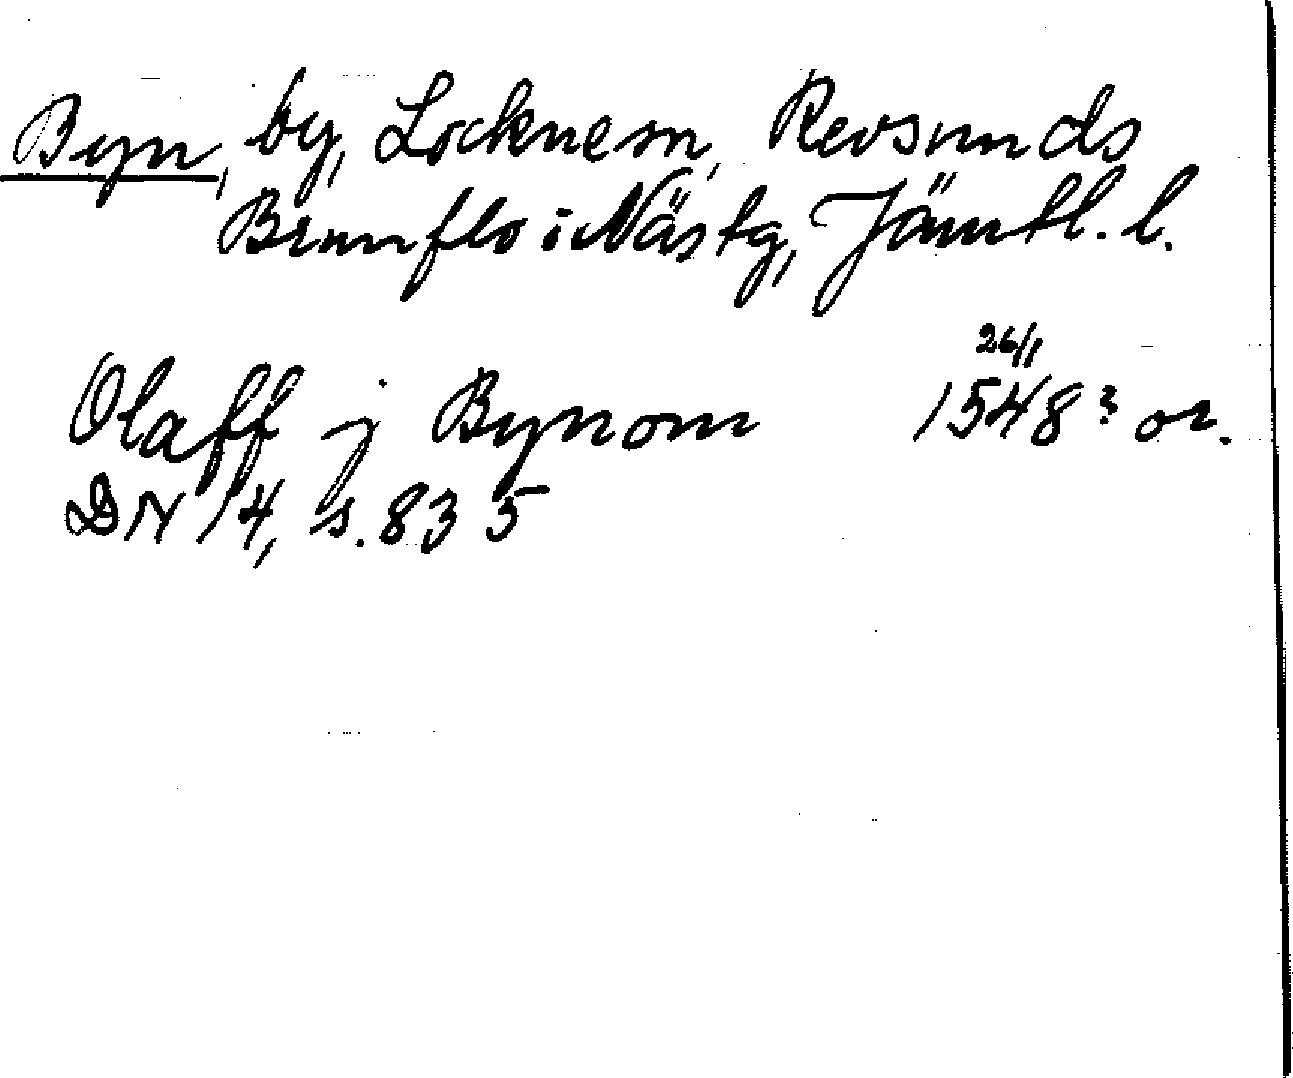 Byn, by, Locknesn, Revsunds
Brunflo i Näs tg, Jämtl. l.
26/1
Olaff j Bynom 1548? or.
DN 14, s. 835